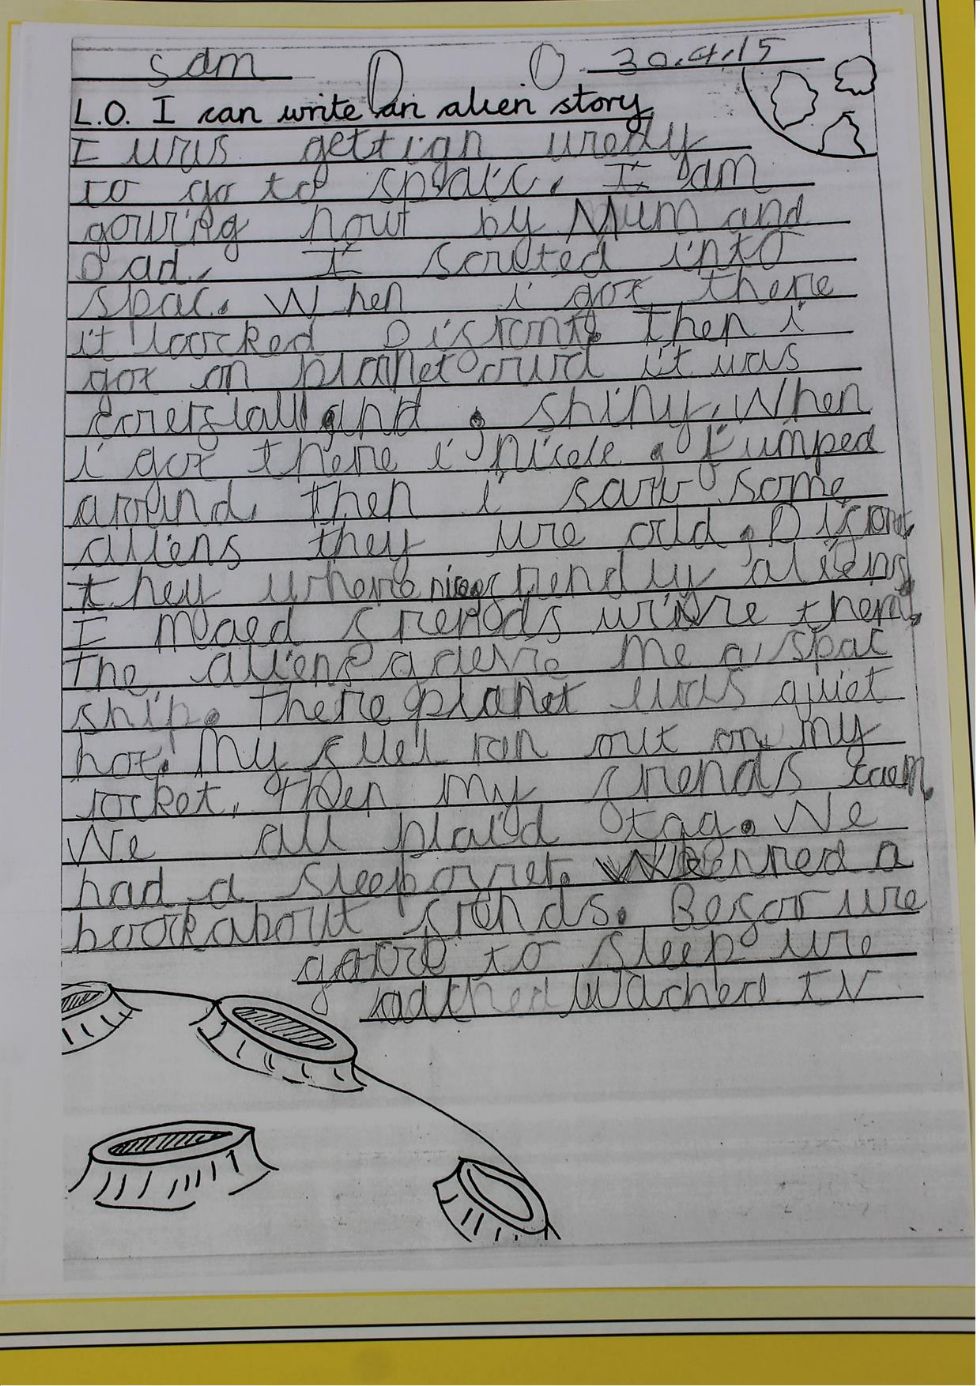 Sam 30.4.15
L.O. I can write an alien story
I was gettign uredy
to go to spaic. I am
gowing now by Mum and
Dad. I scrated into
spac. When i got there
it loocked Diskont. Then i
got on planet it was
and shiny. When
i got there i . I jumped
around. Then i saw some
aliens they ure old. Discont
they where nice frendly aliens
I maed frends withre them.
The aliens me a spac
ship. There planet was quiet
hot. My fuel ran out on my
rocket. Then my frends caem.
We all plaid tag. We
had a sleepover. We rred a
book about frends. Befor we
to sleep we
wached TV